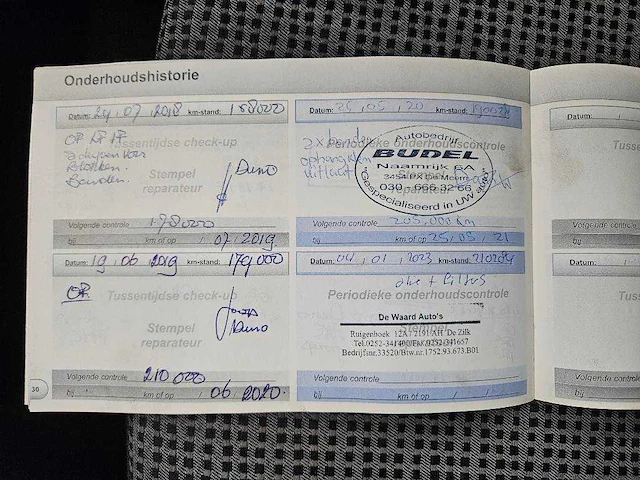 Onderhoudshistorie
Datum: 24, 07, 2018 km-stand: 158000
OF LF FF
Tussentijdse check-up
Stempel
reparateur
Duno
Volgende controle 178000
bij km of op / 07 / 2019
Datum: 25, 05, 20 km-stand: 19002
2x
Periodieke onderhoudscontrole
Autobedrijf
BUDEL
Naamrijk 6A
3454 PX De Meern
030 - 666 32 66
"Gespecialiseerd in UW auto"
Volgende controle 205.000 km
bij km of op 25 / 05 / 21
Datum: 19, 06, 2019 km-stand: 179000
Tussentijdse check-up
Stempel
reparateur
Duno
Volgende controle 210000
bij km of op / 06 / 2020
Datum: 04, 01, 2023 km-stand: 210284
olie + filters
Periodieke onderhoudscontrole
De Waard Auto's
Ruigenhoek 12A / 2191 AH De Zilk
Tel.0252-341400/Fax.0252-341657
Bedrijfsnr.33520/Btw.nr.1752.93.673.B01
Stempel
Volgende controle
bij km of op / /
30
Datum:
Tussen
Volgende controle
bij
Datum:
Tussen
Volgende controle
bij